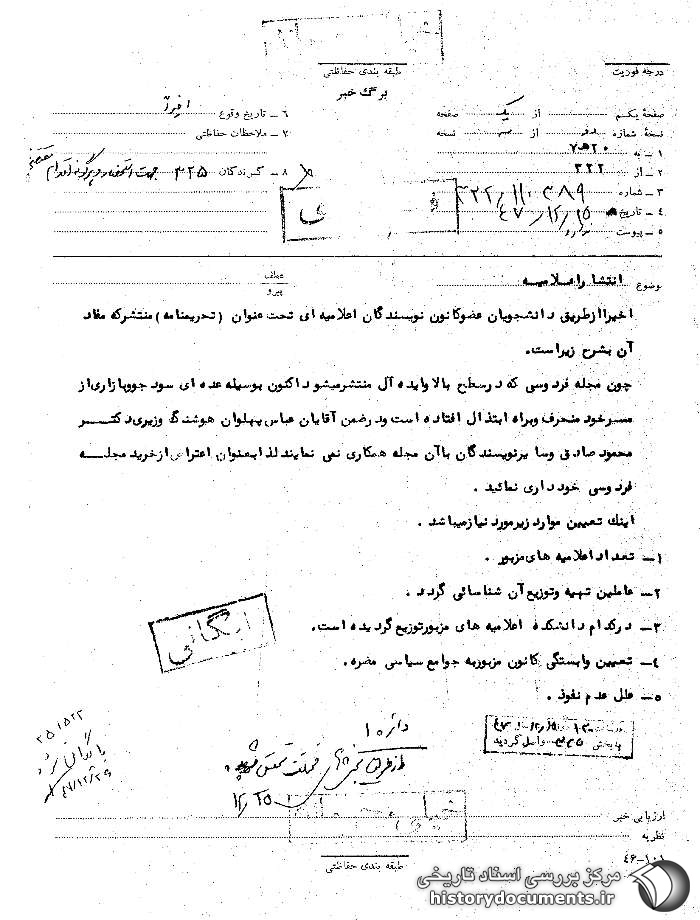 طبقه بندی حفاظتی
درجه فوریت
برگ خبر
صفحهٔ یکم از یک صفحه
نسخهٔ شماره از نسخه
۱ـ به ۲۰ﻫ۷
۲ـ از ۳۲۲
۳ـ شماره ۳۲۲/۱۱۰۳۸۹
۴ـ تاریخ ۴۷/۱۲/۱۵
۵ـ پیوست ندارد
۶ـ تاریخ وقوع اخیراً
۷ـ ملاحظات حفاظتی
۸ـ گیرندگان ۳۲۵ جهت استحضار و هرگونه اقدام مقتضی
موضوع انتشار اعلامیه
عطف
پیرو
اخیرا ازطریق دانشجویان عضوکانون نویسندگان اعلامیه ای تحت عنوان (تحریمنامه) منتشرکه مفاد
آن بشرح زیراست.
چون مجله فردوسی که درسطح بالا وایده آل منتشرمیشود اکنون بوسیله عده ای سود جووبازاری از
مسیرخود منحرف وبراه ابتذال افتاده است ودرضمن آقایان عباس پهلوان هوشنگ وزیری دکتـر
محمود صادقی وسایرنویسندگان باآن مجله همکاری نمی نمایند لذا بعنوان اعتراض ازخرید مجلـه
فردوسی خودداری نمائید.
اینك تعیین موارد زیرمورد نیازمیباشد.
۱ـ تعداد اعلامیه های مزبور.
۲ـ عاملین تهیه وتوزیع آن شناسائی گردد.
۳ـ درکدام دانشکده اعلامیه های مزبورتوزیع گردیده است.
۴ـ تعیین وابستگی کانون مزبوربه جوامع سیاسی مضره.
۵ـ علل عدم نفوذ.
بایگانی
بایگانی شود
۴۷/۱۲/۲۹
دائره ۱
۱۲/۲۵
به بخش ۳۲۵ واصل گردید
ارزیابی خبر
نظریه
۴۶-۱۰۱
طبقه بندی حفاظتی
مرکز بررسی اسناد تاریخی
historydocuments.ir